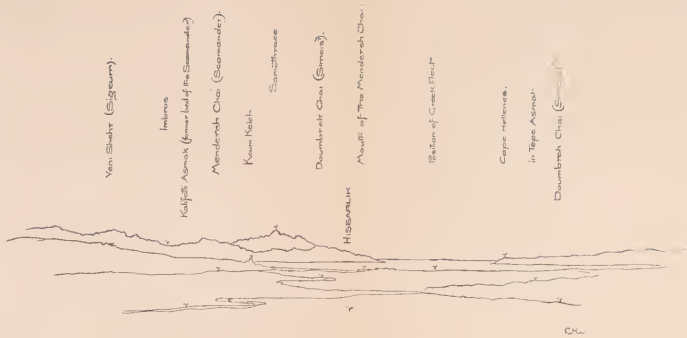 Yeni Shehr (Sigeum).
Imbros
Kalifatli Asmak (former bed of the Scamander)
Mendereh Chai (Scamander).
Koum Kaleh
Samothrace
Doumbrek Chai (Simois).
HISSARLIK
Mouth of the Mendereh Chai
Position of Greek Fleet
Cape Hellenes.
in Tepe Asmak
Doumbrek Chai